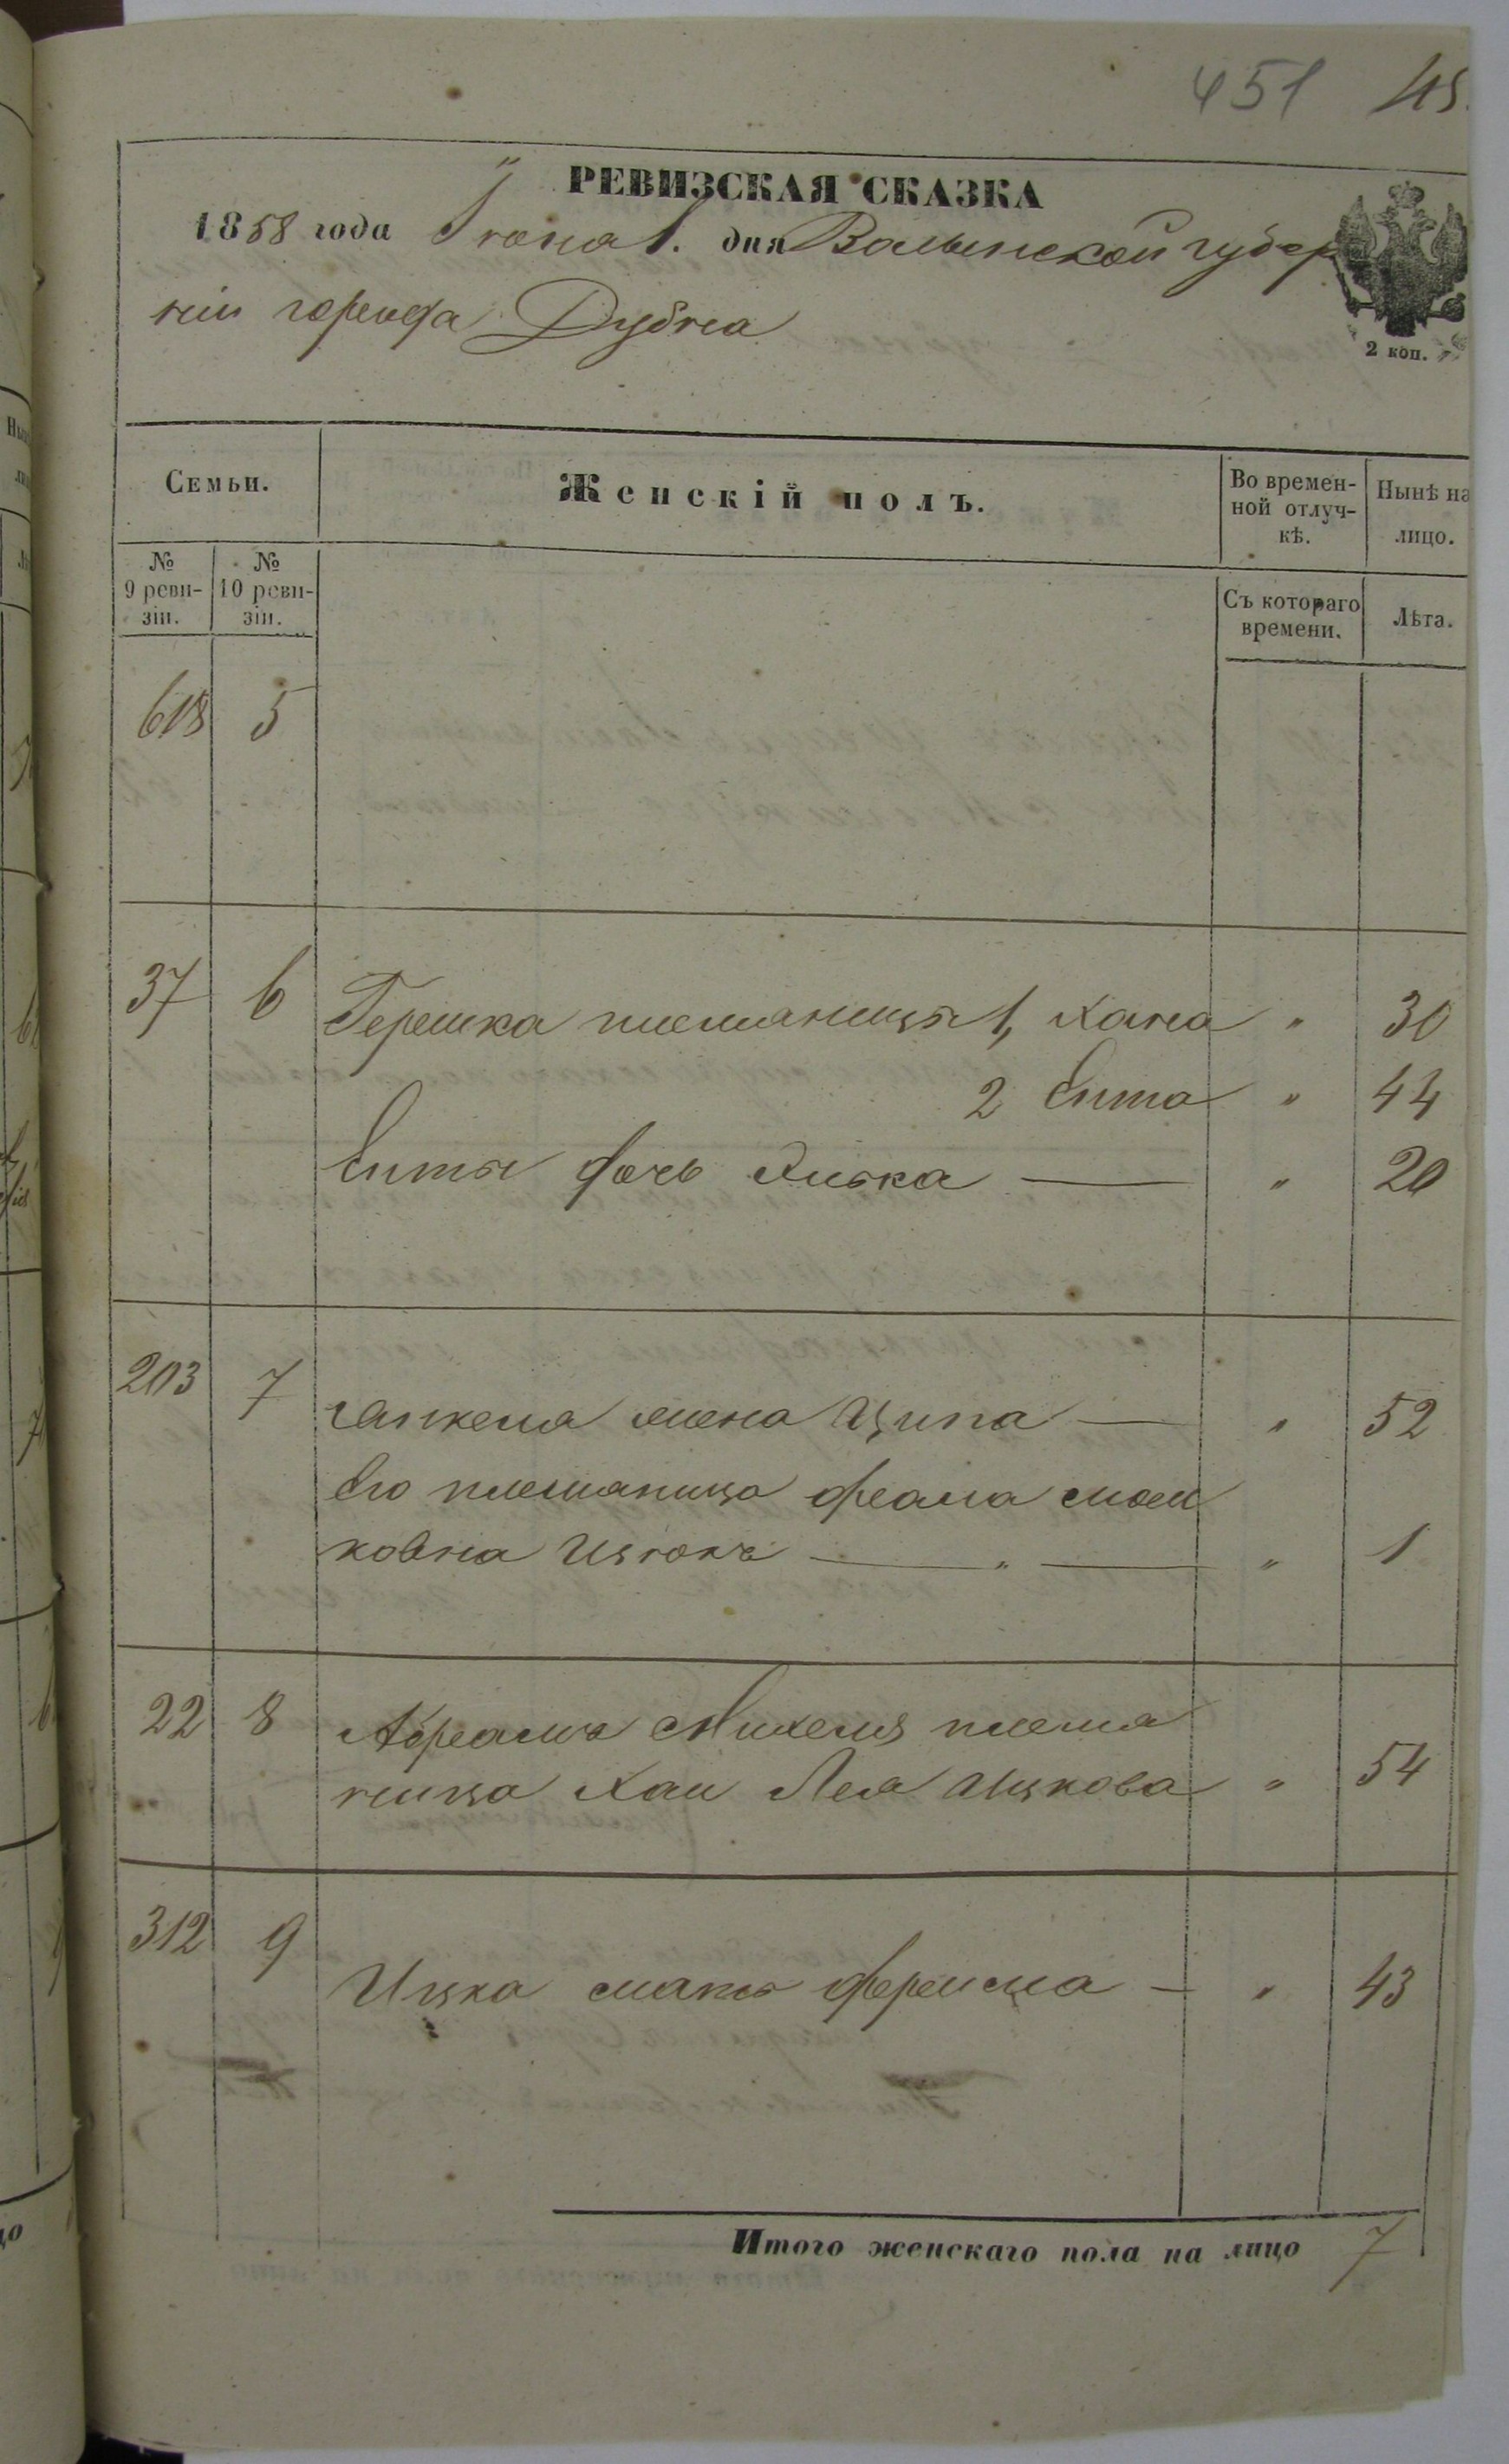 451 45
РЕВИЗСКАЯ СКАЗКА
1858 года Іюня 1. дня Волынской губер
ніи города Дубна
2 коп.
Семьи.
Женскій полъ.
Во времен-
ной отлуч-
кѣ.
Нынѣ на
лицо.
№
9 реви-
зіи.
№
10 реви-
зіи.
Съ котораго
времени.
Лѣта.
618 5
37 6 Гершка племяницы 1, Хана " 30
2 Ента " 44
Енты дочь Ривка — " 20
203 7
жена Ципа — " 52
Его племяница
ковна — " — " 1
22 8 Абрамъ Михеля племя
ница Хаи Лея Ицкова " 54
312 9
Ицка мать — " 43
Итого женскаго пола на лицо 7